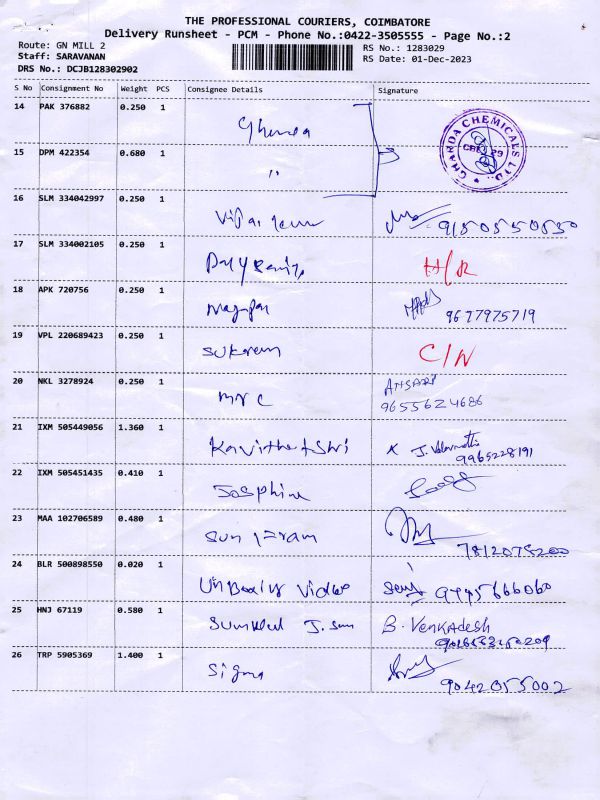 THE PROFESSIONAL COURIERS, COIMBATORE
Delivery Runsheet - PCM - Phone No.:0422-3505555 - Page No.:2
Route: GN MILL 2
RS No.: 1283029
Staff: SARAVANAN
RS Date: 01-Dec-2023
DRS No.: DCJB128302902
S No Consignment No Weight PCS Consignee Details Signature
14 PAK 376882 0.250 1
GHARDA CHEMICALS LTD.
CBE-29
15 DPM 422354 0.680 1 "
16 SLM 334042997 0.250 1 9150550530
17 SLM 334002105 0.250 1 H/R
18 APK 720756 0.250 1 9677975719
19 VPL 220689423 0.250 1 Sukorem C/N
20 NKL 3278924 0.250 1 mrc ANSARI
9655624686
21 IXM 505449056 1.360 1 9965228191
22 IXM 505451435 0.410 1 Josphine
23 MAA 102706589 0.480 1
24 BLR 500898550 0.020 1 Video
25 HNJ 67119 0.580 1 B. Venkadesh
26 TRP 5905369 1.400 1 Sigma 9042055002